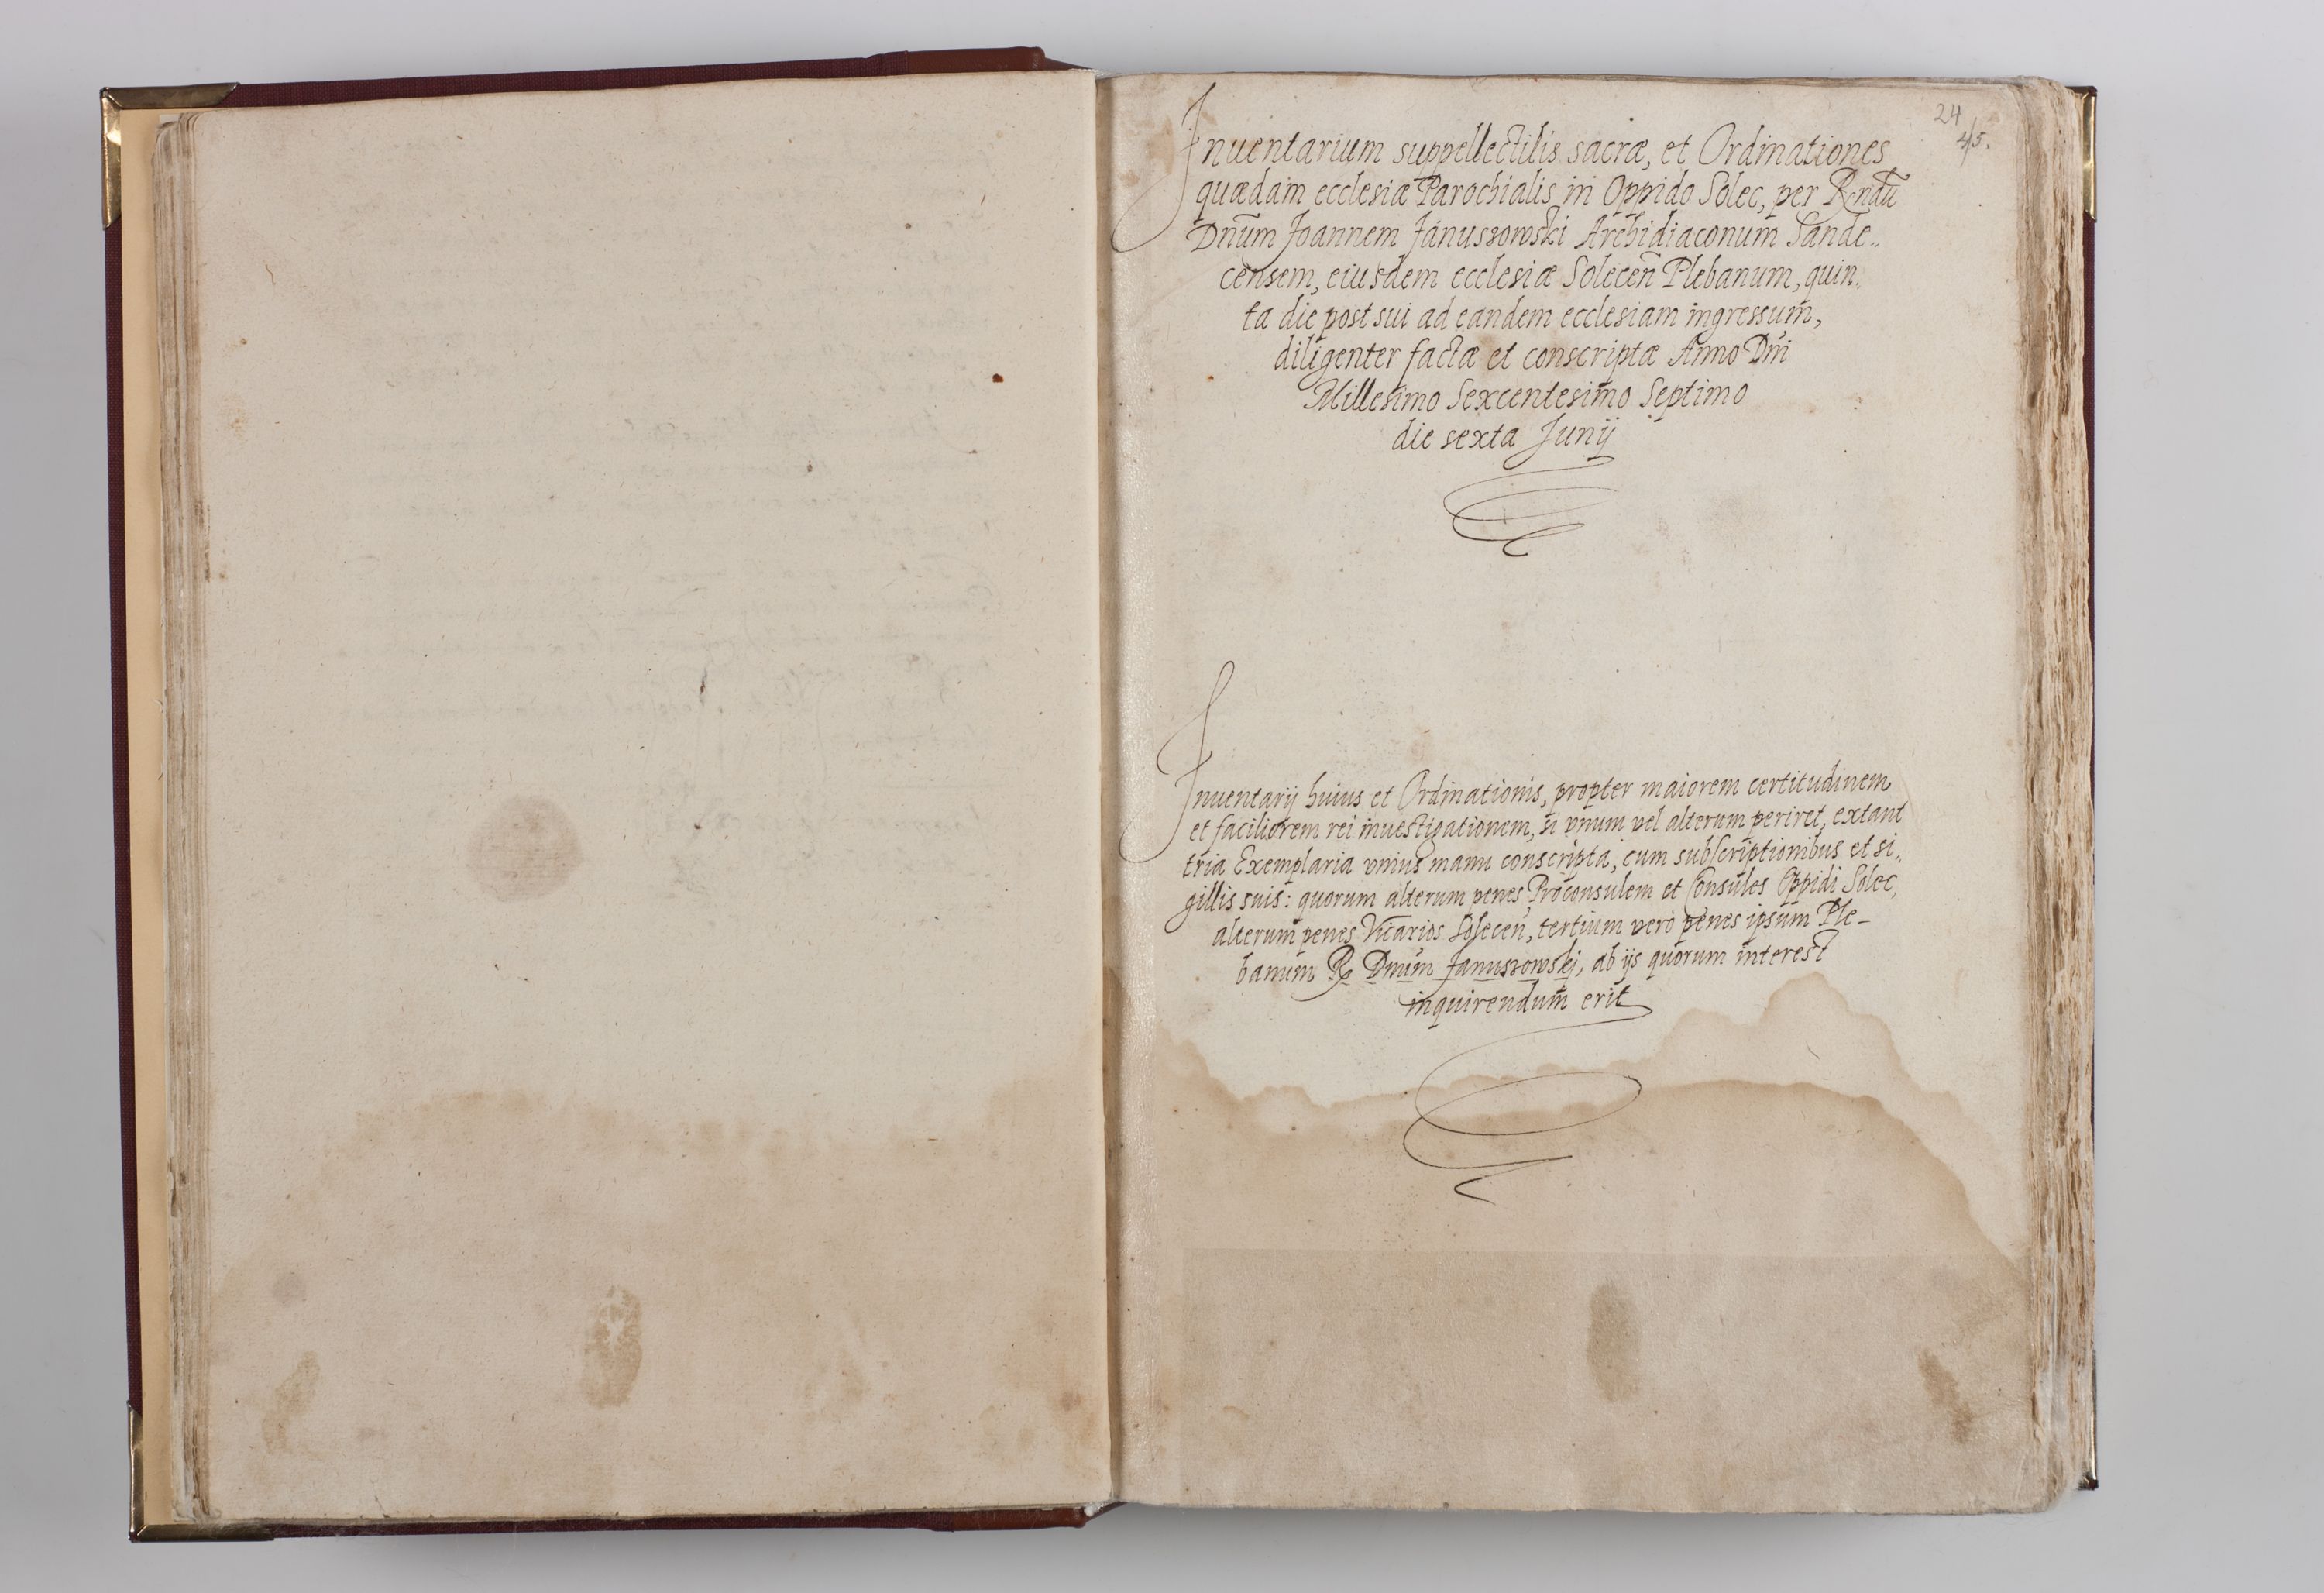 24
45.
Inuentarium suppellectilis sacræ, et Ordinationes
quædam ecclesiæ Parochialis in Oppido Solec, per Rndũ
Dnũm Joannem Januszowski Archidiaconum Sande„
censem, eiusdem ecclesiæ Solecen̄ Plebanum, quin„
ta die post sui ad eandem ecclesiam ingressum,
diligenter factæ et conscriptæ Anno Dni
Millesimo Sexcentesimo Septimo
die sexta Junij
Inuentarij huius et Ordinationis, propter maiorem certitudinem
et faciliorem rei inuestigationem, si vnum vel alterum periret, extant
tria Exemplaria vnius manu conscripta, cum subscriptionibus et si„
gillis suis: quorum alterum penes Proconsulem et Consules Oppidi Solec,
alterum penes Vicarios Solecen̄, tertium vero penes ipsum Ple-
banum R. Dnũm Januszowskj, ab ijs quorum interest
inquirendum erit